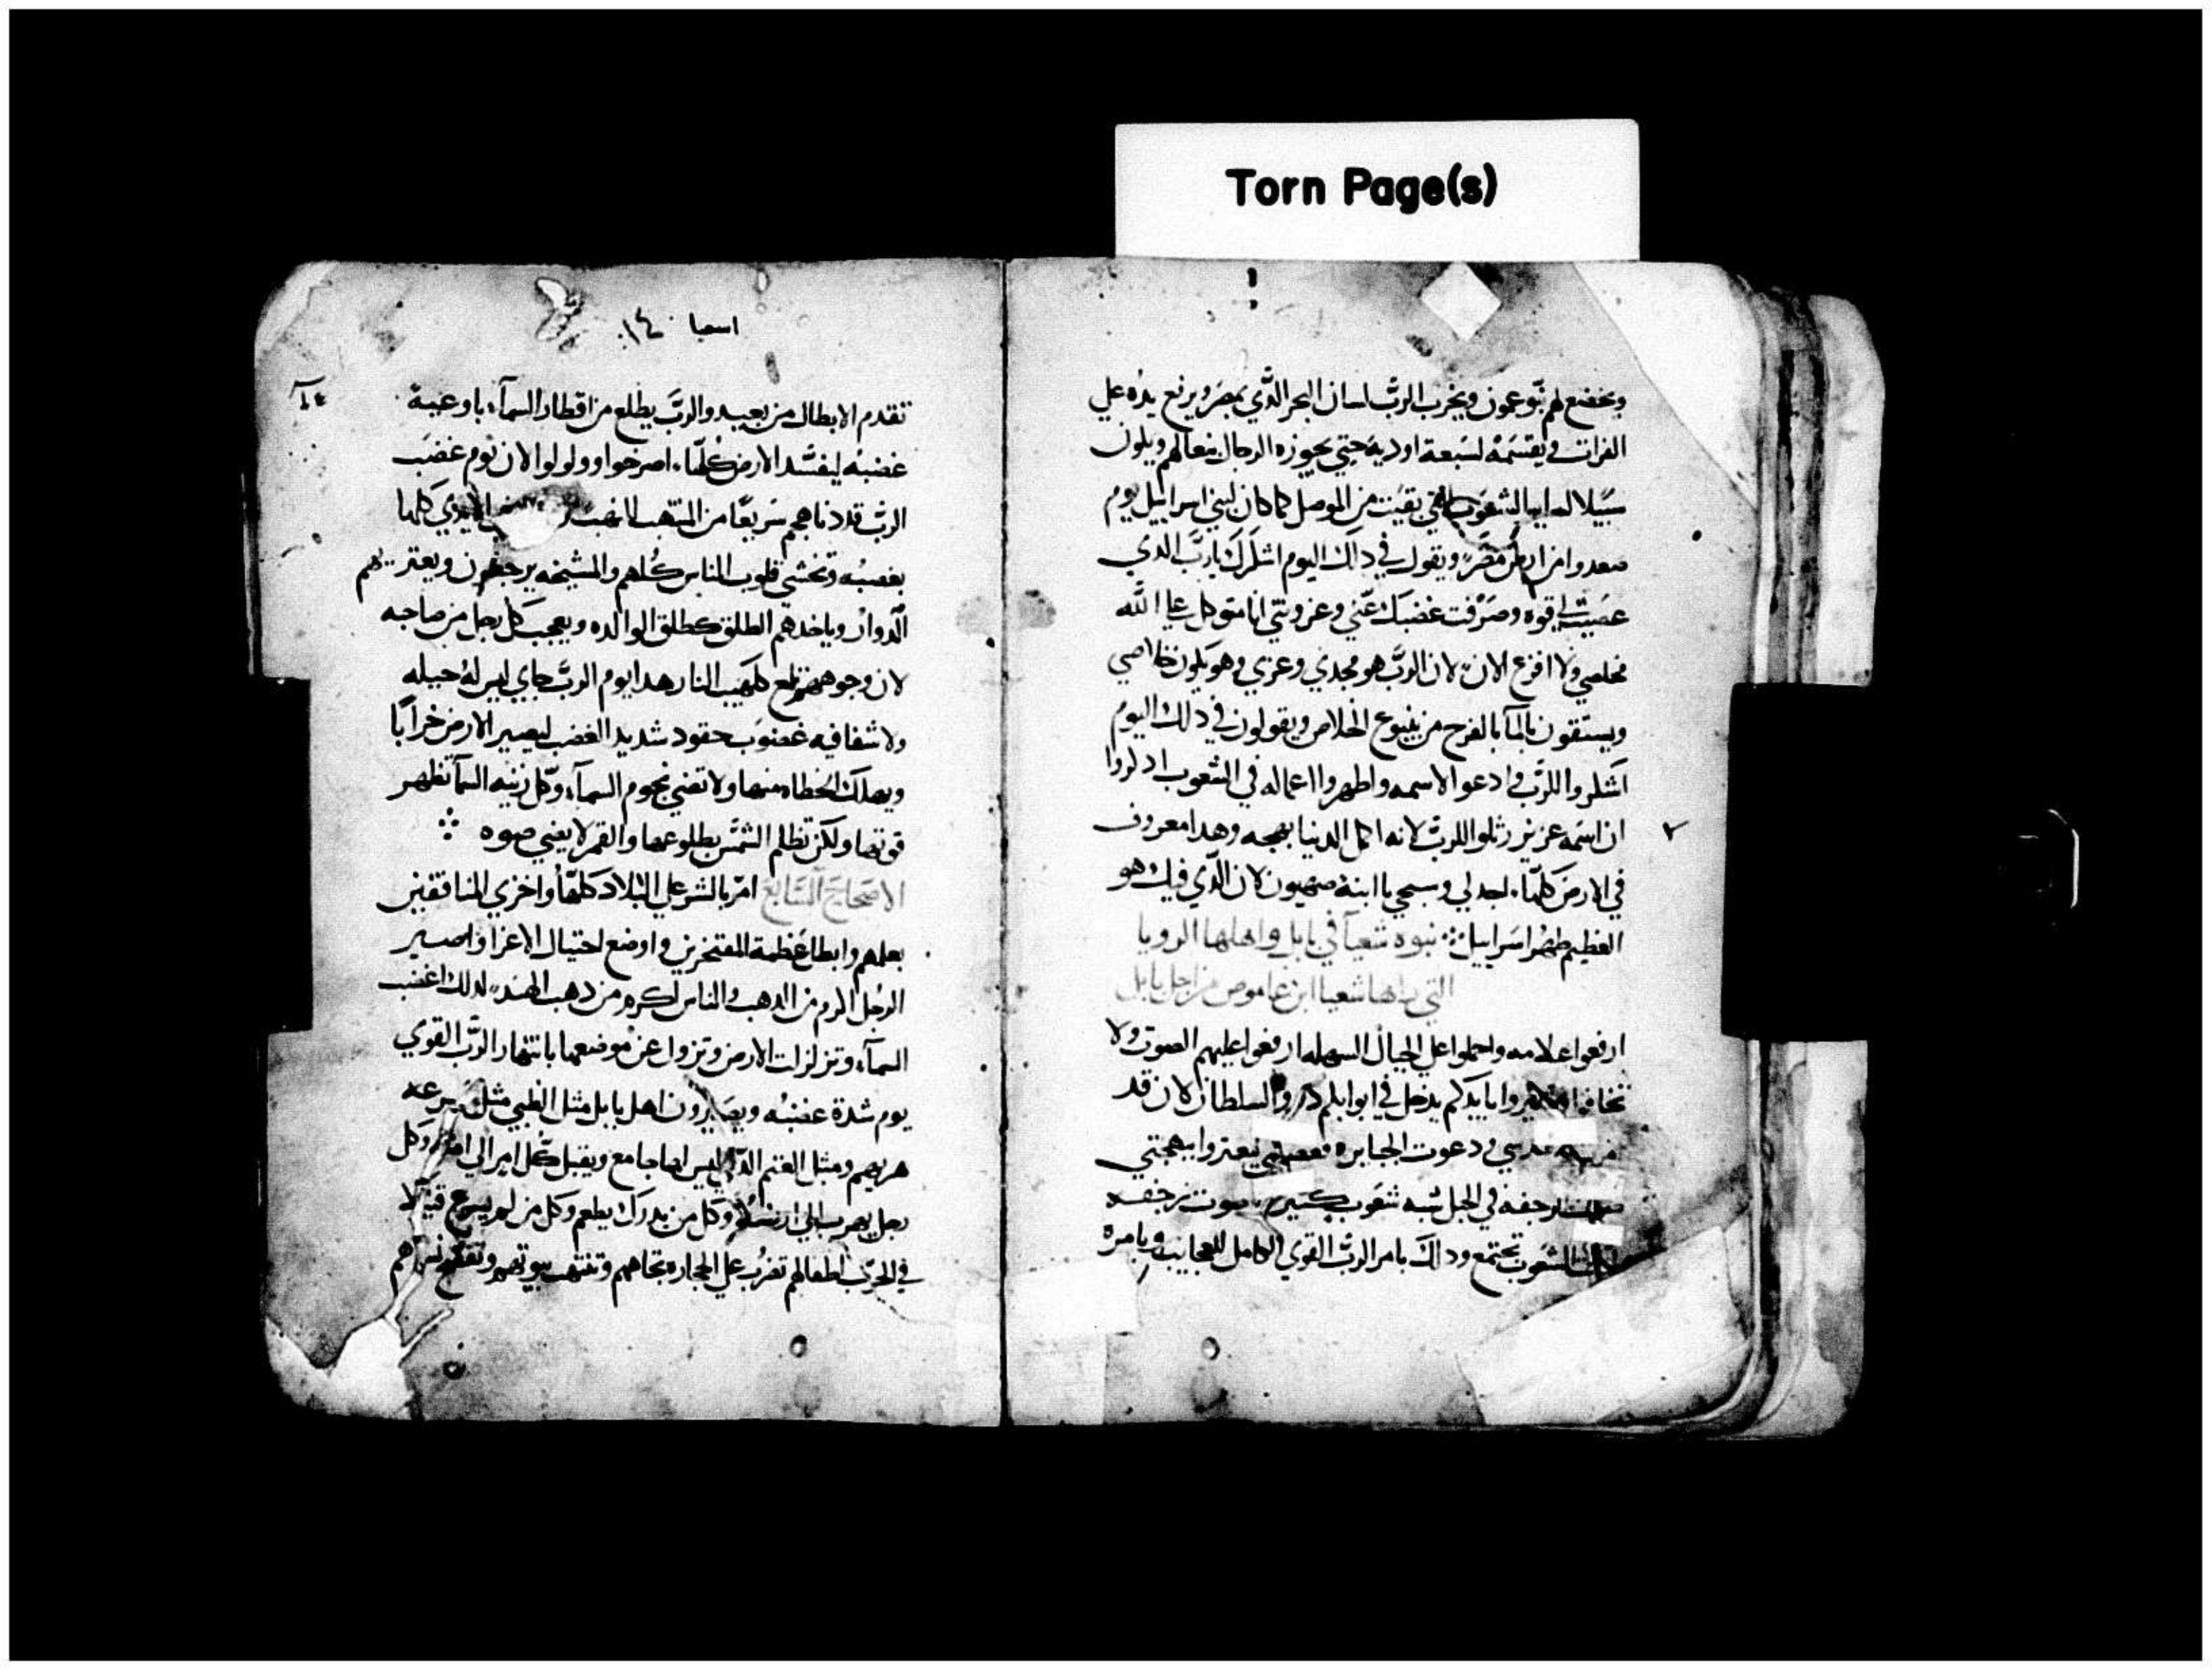 Torn Page(s)
ويخضع لهم بنو عمون ويخرب الرب لسان البحر الذي بمصر ويرفع يده علي
الفرات ويقسمه لسبعة اودية حتي يجوزه الرجال بنعالهم ويكون
سبيلا الشعوب التي بقيت من الموصل كما كان لبني اسراييل يوم
صعدوا من ارض مصر ويقول في داك اليوم اشكرك يا رب الدي
غضبت وصرفت غضبك عني وعزوتني انا متوكل علي الله
مخلصي ولا افزع الان لان الرب هو مجدي وعزي وهو يكون خلاصي
ويستقون بالمآ بالفرح من ينبوع الخلاص ويقولون في دلك اليوم
اشكروا للرب وادعوا لاسمه واظهروا اعماله في الشعوب ادكروا
ان اسمه عزيز رتلوا للرب لانه اكمل الدنيا ببهجه وهدا معروف
في الارض كلها اجدلي وسبحي يا ابنة صهيون لان الذي فيك هو
العظيم طهر اسراييل نبوه شعيآ في بابل واهلها الرويا
التي راها شعيا ابن عاموص من اجل بابل
ارفعوا علامه واحملوا علي الجبال السهله ارفعوا عليهم الصوت ولا
تخافوا بايديكم يدخل في ابوابكم السلطان لان قد
دعوت الجبابره ببهجتي
رجفه في الجبل شبه شعوب كتيره صوت رجفه
الشعوب تجتمع ودالك بامر الرب القوي الكامل العجايب ويامره
اسعيا ١٤
تتقدم الابطال من بعيد والرب يطلع من اقطار السمآ باوعية
غضبه ليفسد الارض كلها اصرخوا وولولوا لان يوم غضب
الرب قد دنا هجم سريعا من المنتهب الايدي كلها
بغضبه وتخشي قلوب الناس كلهم والمشيخه يرجفون ويعتريهم
الدوار وياخدهم الطلق كطلق الوالده ويعجب كل رجل من صاحبه
لان وجوههم كلهيب النار هدا يوم الرب جاي ليس له حيله
ولا شفا فيه غضوب حقود شديد الغضب ليصير الارض خرابا
ويهلك الخطاه منها ولا تضي نجوم السمآ وكل زينه السمآ تظهر
قوتها ولكن تظلم الشمس بطلوعها والقمر لا يضي ضوه
الاصحاح السابع امر بالشر علي البلاد كلها واخزي المنافقين
بعملهم وابطل عظمة المفتخرين واوضع احتيال الاعزا واصير
الرجل اكرم من الدهب والناس اكرم من دهب الهند لدلك اغضب
السمآ وتزلزلت الارض وتزول عن موضعها بانتهار الرب القوي
يوم شدة غضبه ويصيرون اهل بابل مثل الظبي سرعه
هربهم ومثل الغنم الدي ليس لها جامع ويقبل كل امر الي وكل
رجل يهرب الي ارضه وكل من يدرك يطعم وكل من
في الحرب اطفالهم تضرب علي الحجاره تجاههم وتنتهب بيوتهم وتفضح نساهم